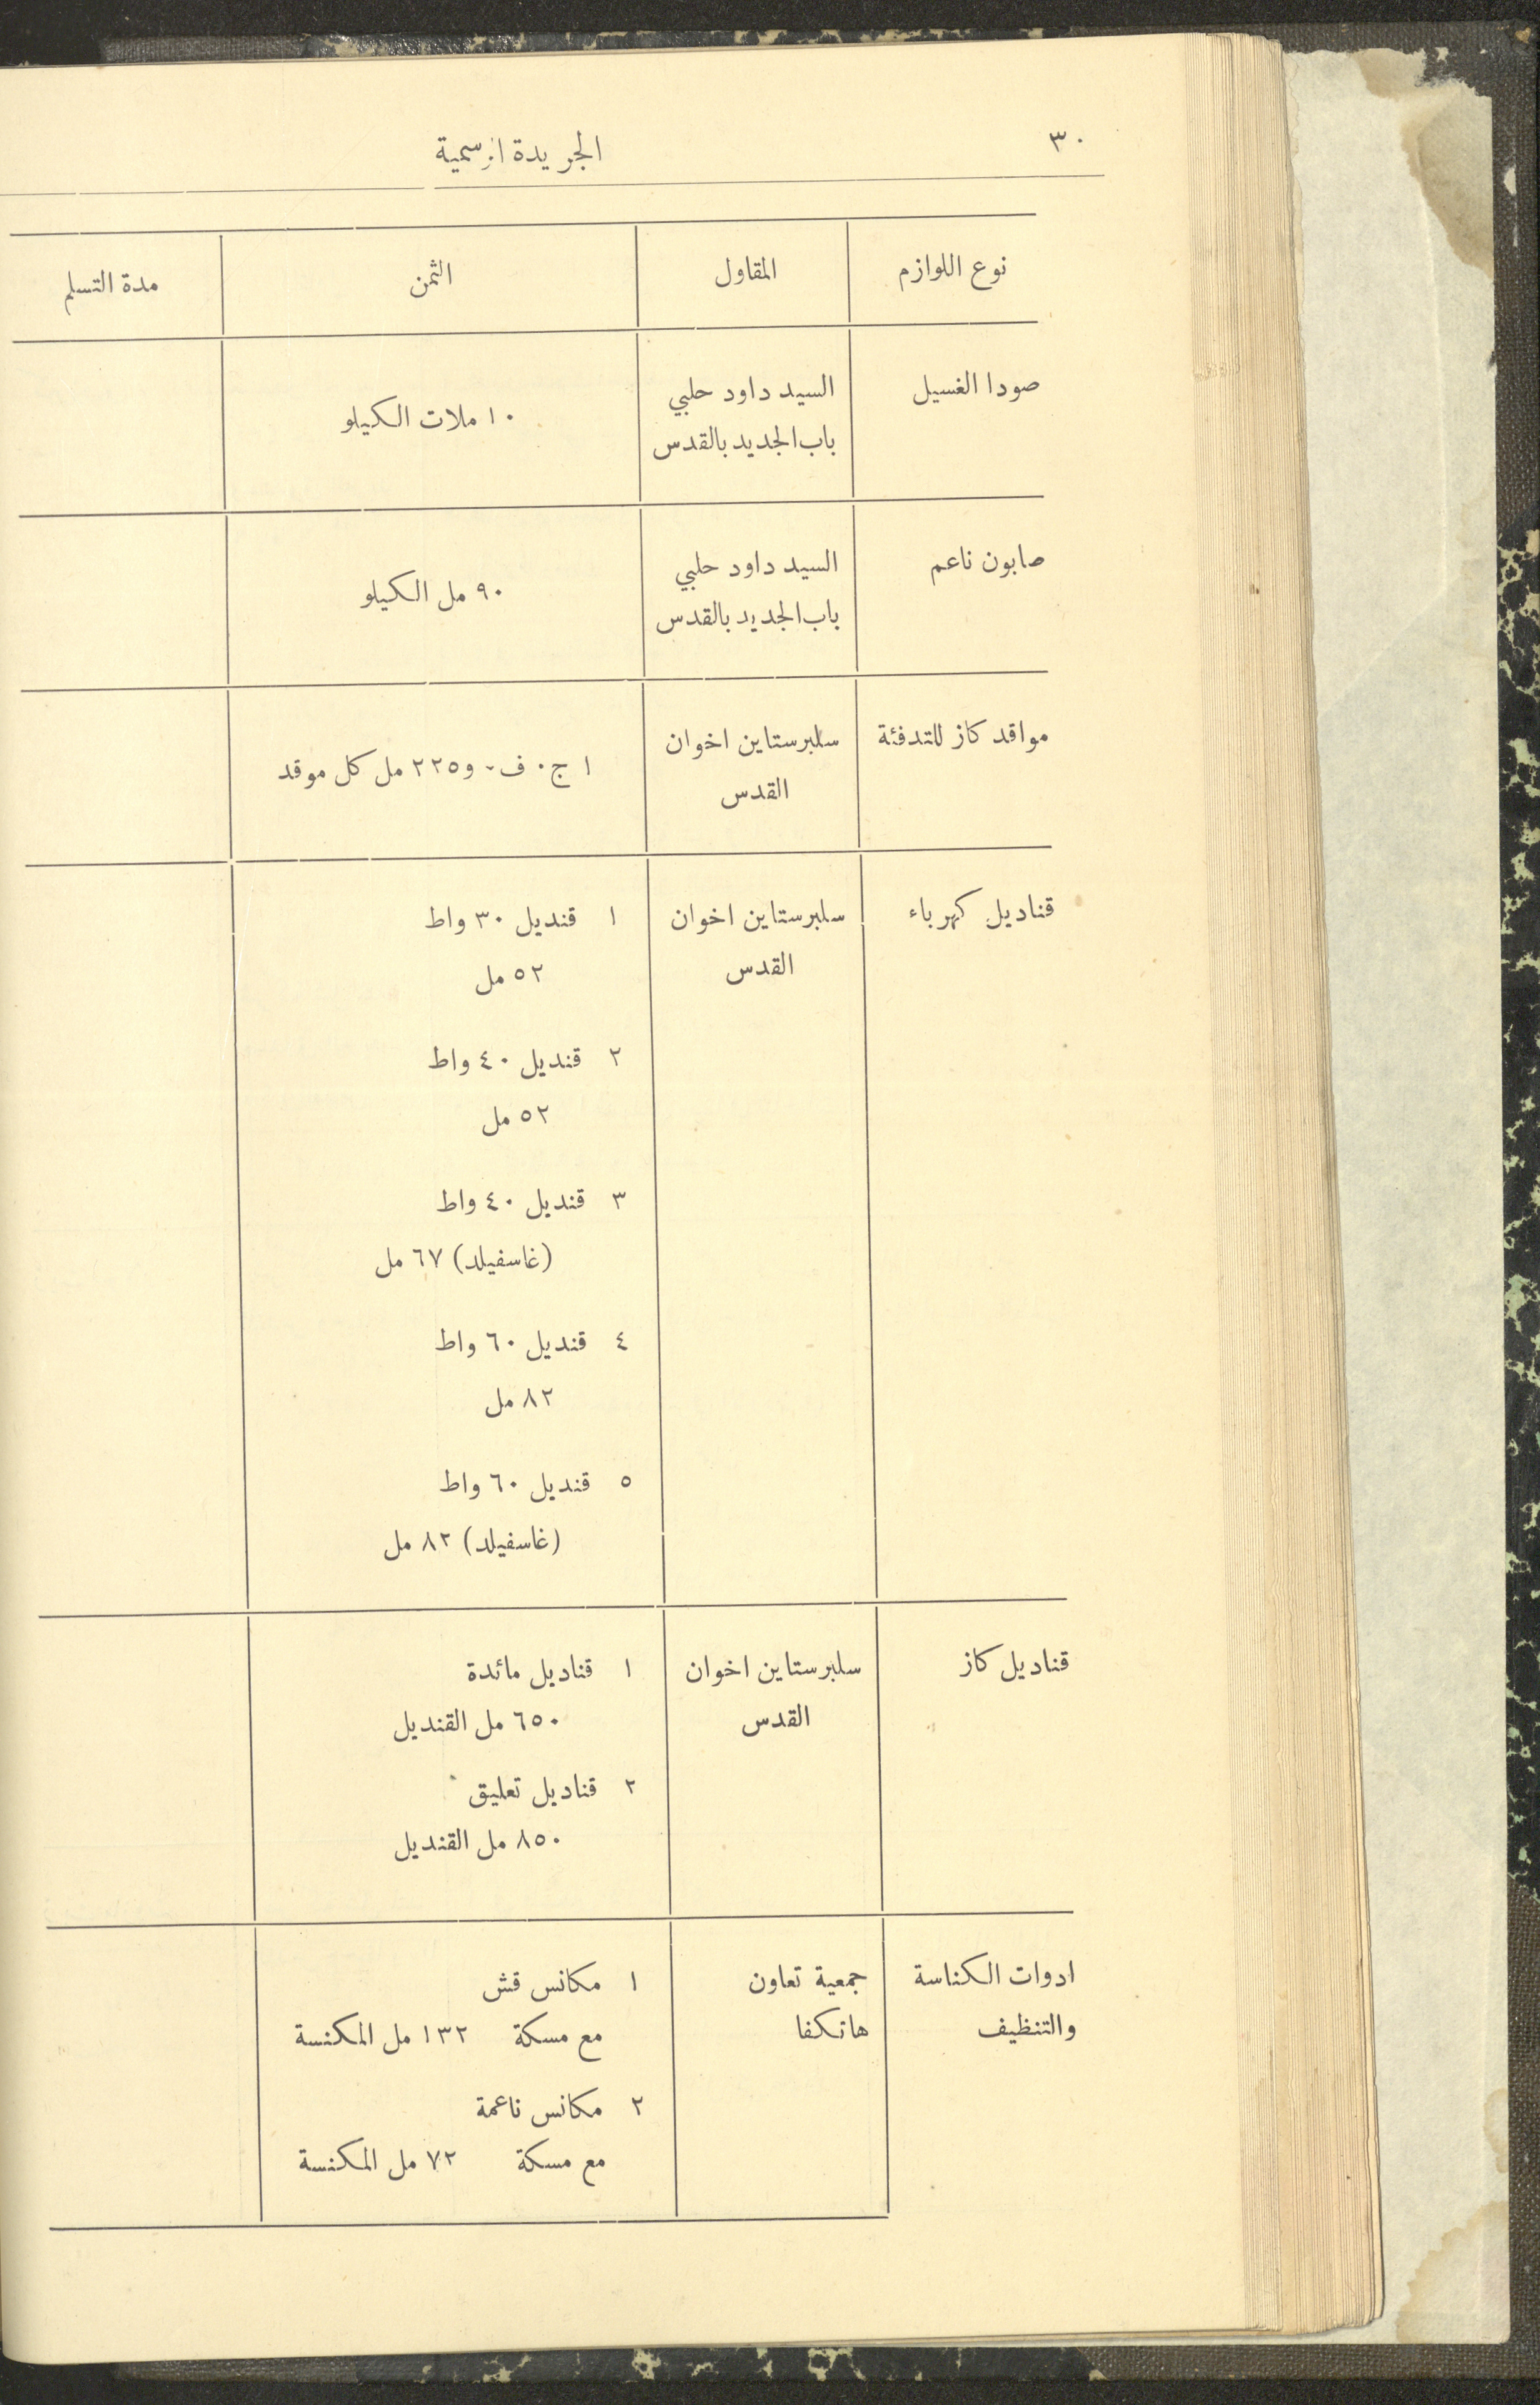 ٣٠
الجريدة الرسمية
نوع اللوازم المقاول الثمن مدة التسلم
صودا الغسيل السيد داود حلبي ١٠ ملات الكيلو
باب الجديد بالقدس
صابون ناعم السيد داود حلبي ٩٠ مل الكيلو
باب الجديد بالقدس
مواقد كاز للتدفئة سلبرستاين اخوان ١ ج. ف. و٢٢٥ مل كل موقد
القدس
قناديل كهرباء سلبرستاين اخوان ١ قنديل ٣٠ واط
القدس ٥٢ مل
٢ قنديل ٤٠ واط
٥٢ مل
٣ قنديل ٤٠ واط
(غاسفيلد) ٦٧ مل
٤ قنديل ٦٠ واط
٨٢ مل
٥ قنديل ٦٠ واط
(غاسفيلد) ٨٢ مل
قناديل كاز سلبرستاين اخوان ١ قناديل مائدة
القدس ٦٥٠ مل القنديل
٢ قناديل تعليق
٨٥٠ مل القنديل
ادوات الكناسة جمعية تعاون ١ مكانس قش
والتنظيف هاتكفا مع مسكة ١٣٢ مل المكنسة
٢ مكانس ناعمة
مع مسكة ٧٢ مل المكنسة